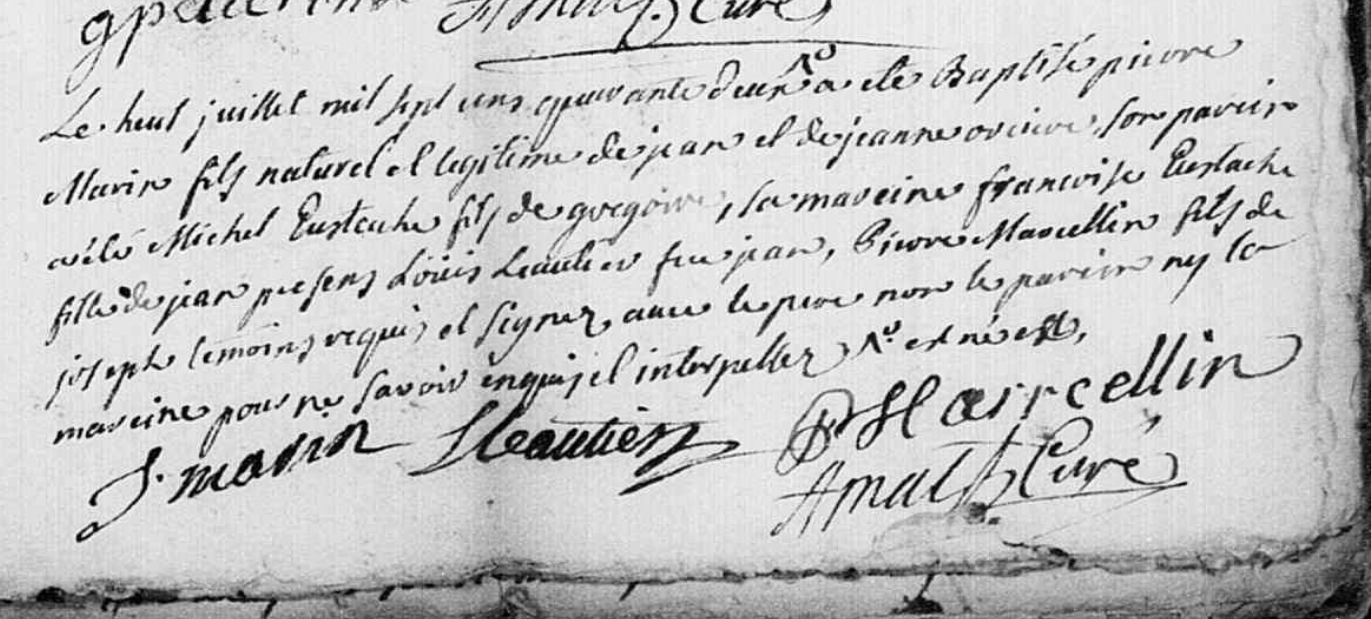 Amat Curé
Le heut juillet mil sept cens quarante deux a eté Baptisé pierre
Marin fils naturel et legitime de jean et de jeanne son parein
a été Michel Eustache fils de gregoire, sa mareine françoise Eustache
fille de jean presens Loüis Leautier feu jean, Pierre Marcellin fils de
joseph temoins requis et signez avec le pere non le parein ny la
mareine pour ne savoir enquis et interpellez
J. marin Lleautier P Marcellin
Amat Curé